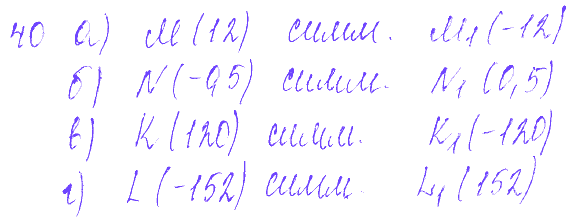 40 а) M (12) симм. M₁ (-12)
б) N (-0,5) симм. N₁ (0,5)
в) K (120) симм. K₁ (-120)
г) L (-152) симм. L₁ (152)